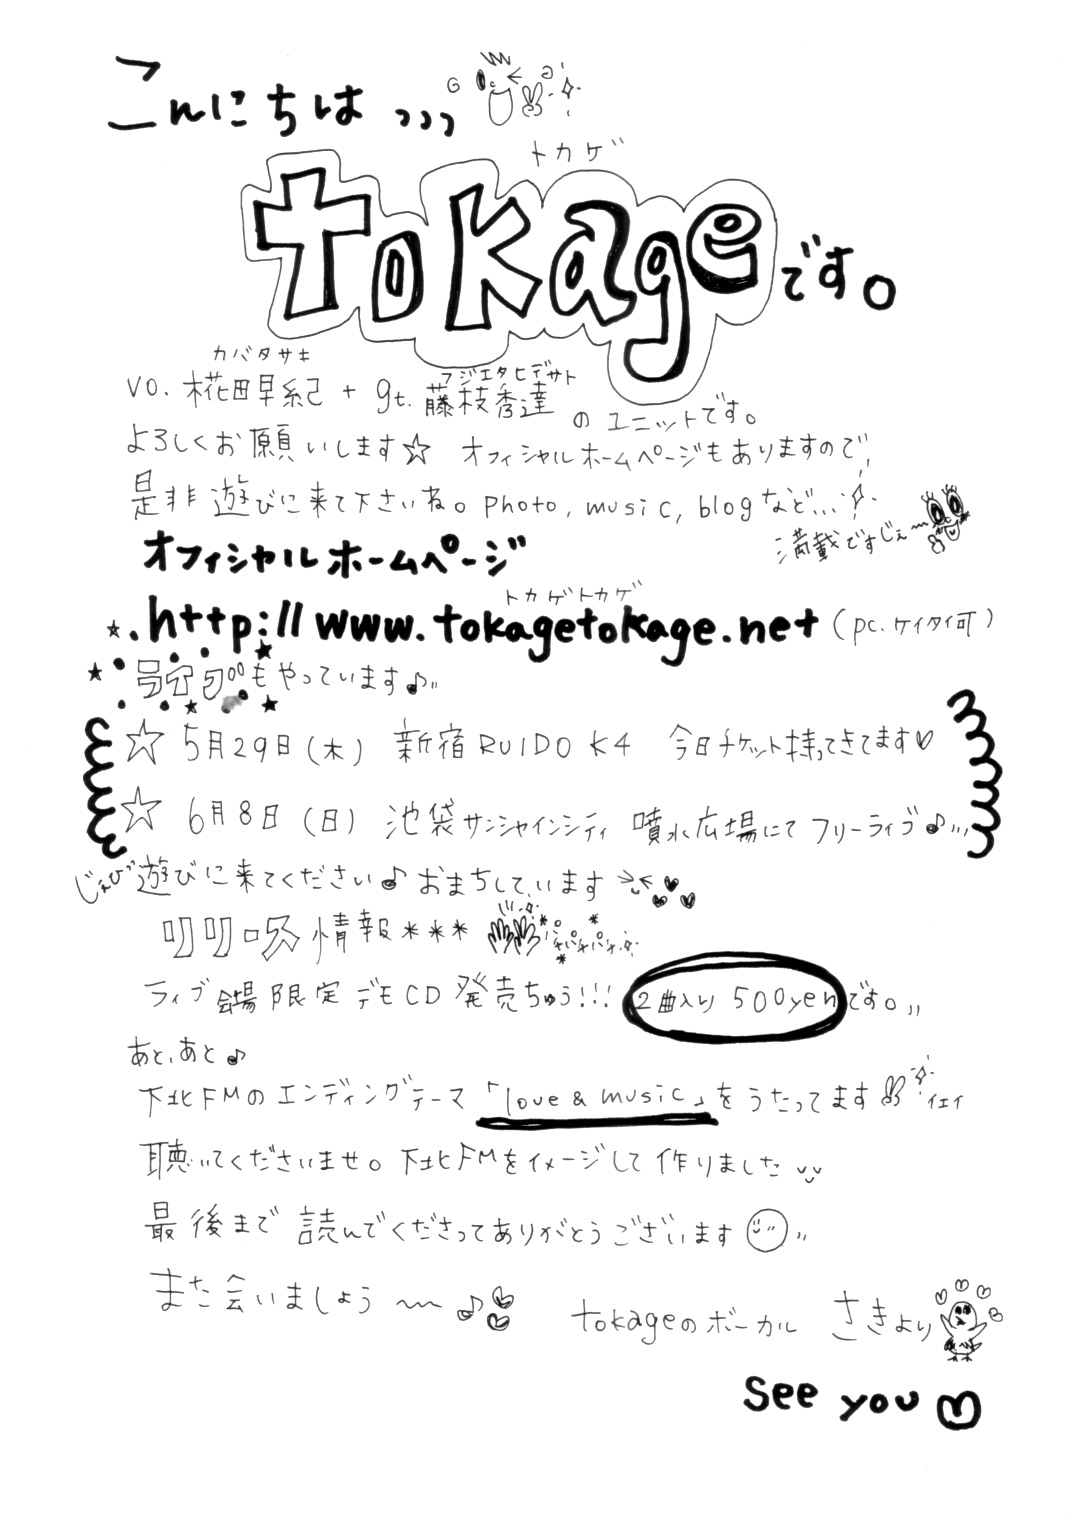 こんにちは,,,
トカゲ
tokageです。
カバタサキ
フジエタヒデサト
vo.椛田早紀 + gt.藤枝秀達のユニットです。
よろしくお願いします☆ オフィシャルホームページもありますので
是非遊びに来て下さいね。photo, music, blogなど...
満載ですじぇ〜
オフィシャルホームページ
トカゲトカゲ
http://www.tokagetokage.net (pc.ケイタイ可)
ライブもやっています♪
☆ 5月29日(木) 新宿RUIDO K4 今日チケット持ってきてます♡
☆ 6月8日(日) 池袋サンシャインシティ 噴水広場にてフリーライブ♪
じぇひ遊びに来てください♪おまちしています
リリース情報＊＊＊
パチパチパチ
ライブ会場限定デモCD発売ちゅう!!! 2曲入り 500yenです。
あと、あと♪
下北FMのエンディングテーマ「love & music」をうたってます
イェイ
聴いてくださいませ。下北FMをイメージして作りました
最後まで読んでくださってありがとうございます
また会いましょう〜♪
tokageのボーカル さきより
see you ♡